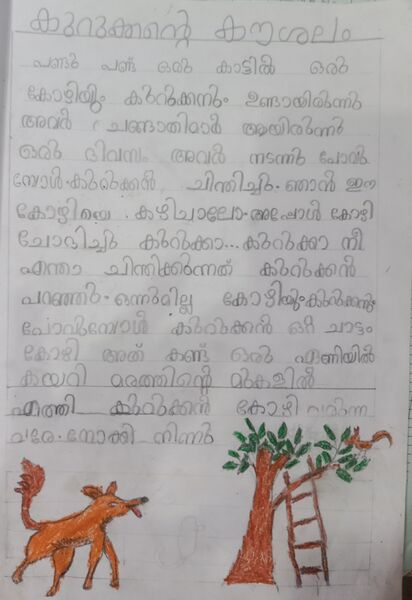 കുറുക്കന്റെ കൗശലം
പണ്ടു പണ്ട് ഒരു കാട്ടിൽ ഒരു
കോഴിയും കുറുക്കനും ഉണ്ടായിരുന്നു
അവർ ചങ്ങാതിമാർ ആയിരുന്നു
ഒരു ദിവസം അവർ നടന്നു പോവു
മ്പോൾ കുറുക്കൻ ചിന്തിച്ചു. ഞാൻ ഈ
കോഴിയെ കഴിച്ചാലോ. അപ്പോൾ കോഴി
ചോദിച്ചു കുറുക്കാ... കുറുക്കാ നീ
എന്താ ചിന്തിക്കുന്നത് കുറുക്കൻ
പറഞ്ഞു. ഒന്നുമില്ല കോഴിയും കുറുക്കനും
പോവുമ്പോൾ കുറുക്കൻ ഒറ്റ ചാട്ടം
കോഴി അത് കണ്ട് ഒരു ഏണിയിൽ
കയറി മരത്തിന്റെ മുകളിൽ
എത്തി കുറുക്കൻ കോഴി വരുന്ന
വരെ നോക്കി നിന്നു